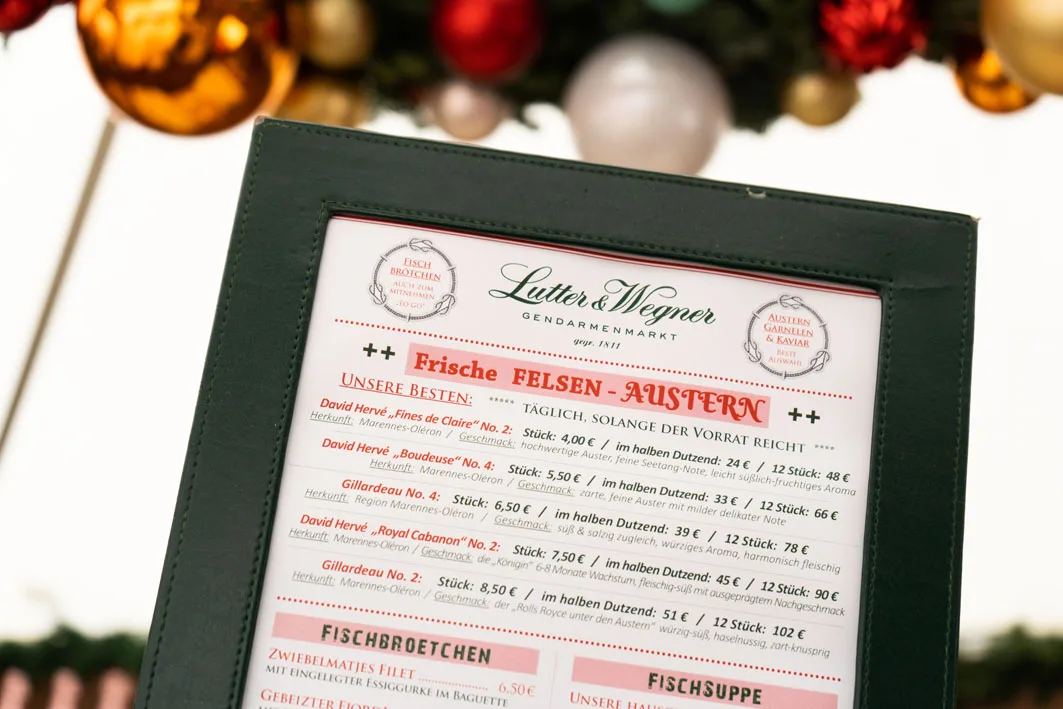 FISCH
BRÖTCHEN
AUCH ZUM
MITNEHMEN
„TO GO“
Lutter & Wegner
GENDARMENMARKT
gegr. 1811
AUSTERN
GARNELEN
& KAVIAR
BESTE
AUSWAHL
++ Frische FELSEN - AUSTERN ++
UNSERE BESTEN: ***** TÄGLICH, SOLANGE DER VORRAT REICHT ****
David Hervé „Fines de Claire“ No. 2: Stück: 4,00 € / im halben Dutzend: 24 € / 12 Stück: 48 €
Herkunft: Marennes-Oléron / Geschmack: hochwertige Auster, feine Seetang-Note, leicht süßlich-fruchtiges Aroma
David Hervé „Boudeuse“ No. 4: Stück: 5,50 € / im halben Dutzend: 33 € / 12 Stück: 66 €
Herkunft: Marennes-Oléron / Geschmack: zarte, feine Auster mit milder delikater Note
Gillardeau No. 4: Stück: 6,50 € / im halben Dutzend: 39 € / 12 Stück: 78 €
Herkunft: Region Marennes-Oléron / Geschmack: süß & salzig zugleich, würziges Aroma, harmonisch fleischig
David Hervé „Royal Cabanon“ No. 2: Stück: 7,50 € / im halben Dutzend: 45 € / 12 Stück: 90 €
Herkunft: Marennes-Oléron / Geschmack: die „Königin“ 6-8 Monate Wachstum, fleischig-süß mit ausgeprägtem Nachgeschmack
Gillardeau No. 2: Stück: 8,50 € / im halben Dutzend: 51 € / 12 Stück: 102 €
Herkunft: Marennes-Oléron / Geschmack: der „Rolls Royce unter den Austern“ würzig-süß, haselnussig, zart-knusprig
FISCHBROETCHEN
ZWIEBELMATJES FILET .................. 6.50 €
MIT EINGELEGTER ESSIGGURKE IM BAGUETTE
GEBEIZTER
FISCHSUPPE
UNSERE